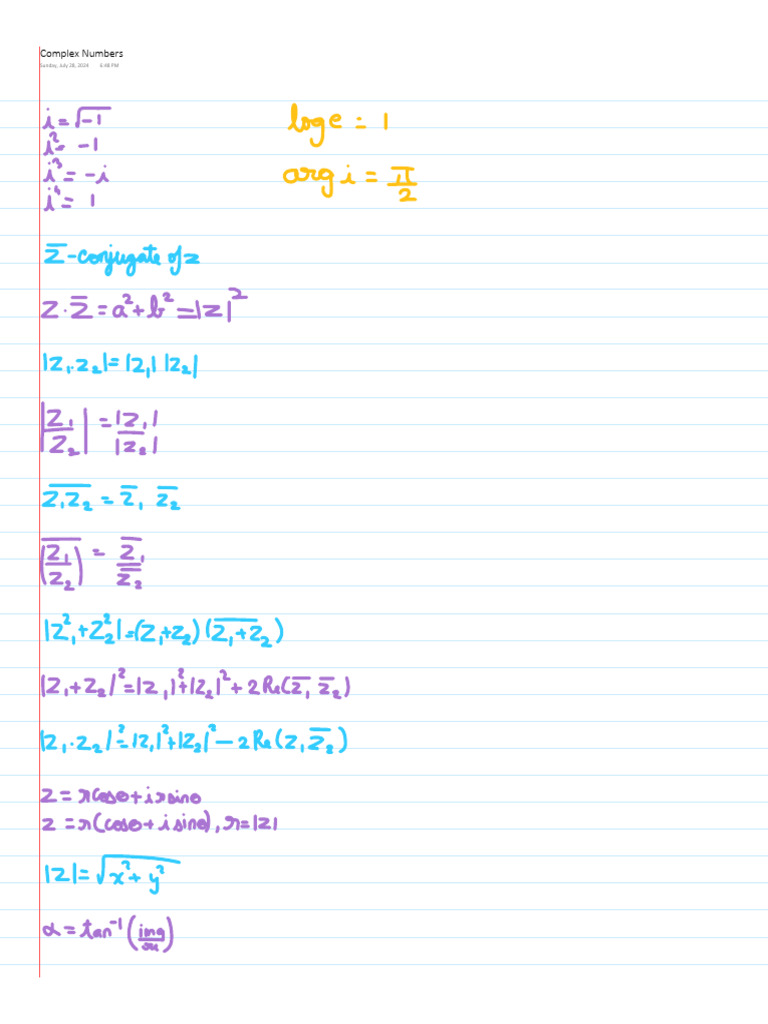 Complex Numbers
Sunday, July 28, 2024 6:48 PM
i = √-1
log e = 1
i² = -1
i³ = -i
arg i = π/2
i⁴ = 1
z̅ - conjugate of z
z · z̅ = a² + b² = |z|²
|z₁ · z₂| = |z₁| |z₂|
|z₁/z₂| = |z₁|/|z₂|
\overline{z₁z₂} = z̅₁ z̅₂
\overline{(z₁/z₂)} = z̅₁/z̅₂
|z₁² + z₂²| = (z₁ + z₂) (\overline{z₁ + z₂})
|z₁ + z₂|² = |z₁|² + |z₂|² + 2Re(z̅₁ z̅₂)
|z₁ · z₂|² = |z₁|² + |z₂|² - 2Re(z₁ z̅₂)
z = r cosθ + i r sinθ
z = r(cosθ + i sinθ), r = |z|
|z| = √x² + y²
α = tan⁻¹ (img/re)